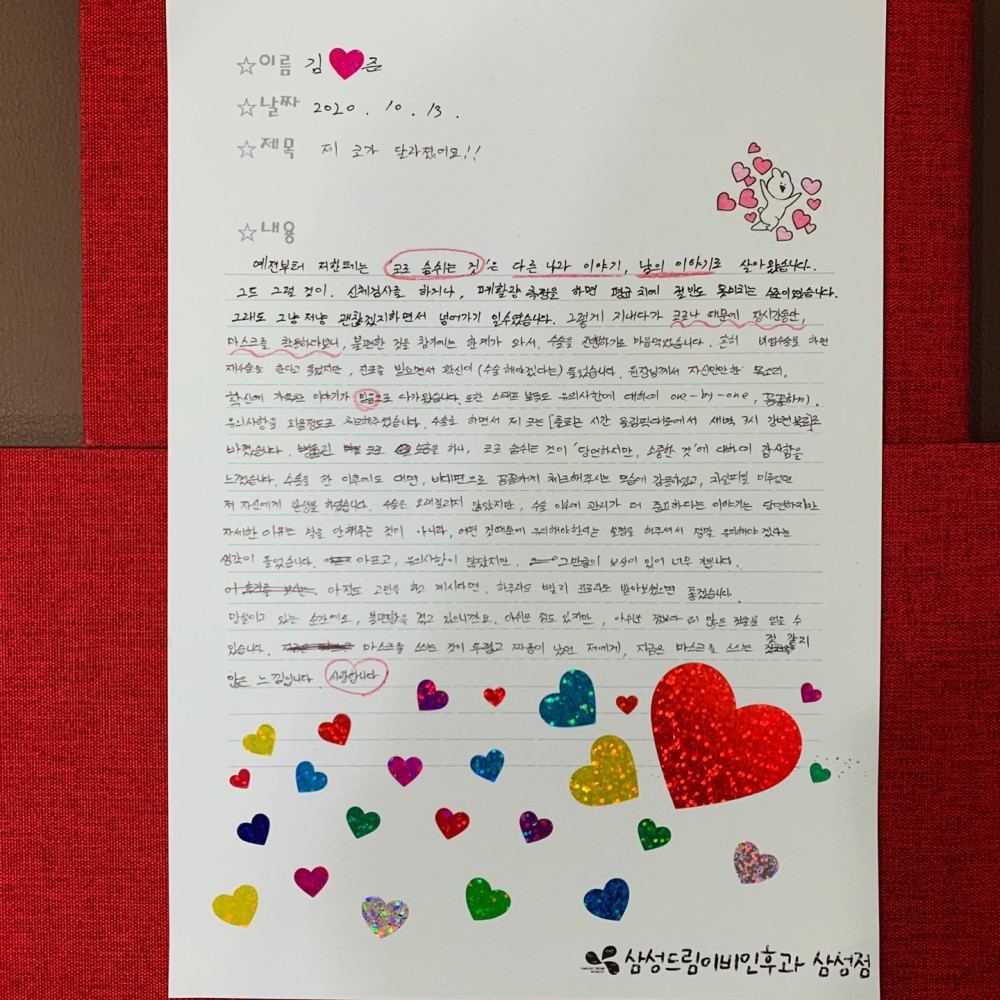 ☆이름 김♥준
☆날짜 2020. 10. 13.
☆제목 제 코가 달라졌어요!!
☆내용
예전부터 저한테는 '코로 숨쉬는 것'은 다른 나라 이야기, 남의 이야기로 살아왔습니다.
그도 그럴 것이. 신체검사를 하거나, 폐활량 측정을 하면 평균치에 절반도 못미치는 수준이었습니다.
그래도 그냥저냥 괜찮겠지하면서 넘어가기 일수였습니다. 그렇게 지내다가 코로나 때문에 장시간동안,
마스크를 착용하다보니, 불편한 것을 참기에는 한계가 와서, 수술을 진행하기로 마음먹었습니다. 흔히 비염수술로 하면
재수술을 한다고 들었지만, 진료를 받으면서 확신이 (수술 해야겠다는) 들었습니다. 원장님께서 자신만만한 목소리,
확신에 가득찬 이야기가 믿음으로 다가왔습니다. 또한 스태프 분들도 유의사항에 대하여 one-by-one, 꼼꼼하게,
유의사항을 외울정도로 체크해주었습니다. 수술을 하면서 제 코는 [출퇴근 시간 올림픽대로에서 새벽 3시 강변북로]로
바꼈습니다. 코로 숨을 쉬니, 코로 숨쉬는 것이 '당연하지만, 소중한 것'에 대하여 감사함을
느꼈습니다. 수술을 한 이후에도 대면, 비대면으로 꼼꼼하게 체크해주시는 모습에 감동하였고, 차일피일 미루었던
제 자신에게 반성을 하였습니다. 수술은 오래걸리지 않았지만, 수술 이후에 관리가 더 중요하다는 이야기는 당연하지만
자세한 이유는 말을 안해주는 것이 아니라, 어떤 것때문에 유의해야한다는 설명을 해주셔서 정말 유의해야 겠다는
생각이 들었습니다. 아프고, 유의사항이 많았지만, 그만큼의 보상이 있어 너무 기쁩니다.
아직도 고민을 하고 계시다면, 하루라도 빨리 진료라도 받아보셨으면 좋겠습니다.
망설이고 있는 순간에도, 불편함을 겪고 있으니까요. 아쉬운 점도 있지만, 아쉬운 점보다 더 많은 것들을 얻을 수
있습니다. 마스크를 쓰는 것이 두렵고 짜증이 났던 저에게, 지금은 마스크를 쓰는 것 같지
않은 느낌입니다. 사랑합니다
삼성드림이비인후과 삼성점